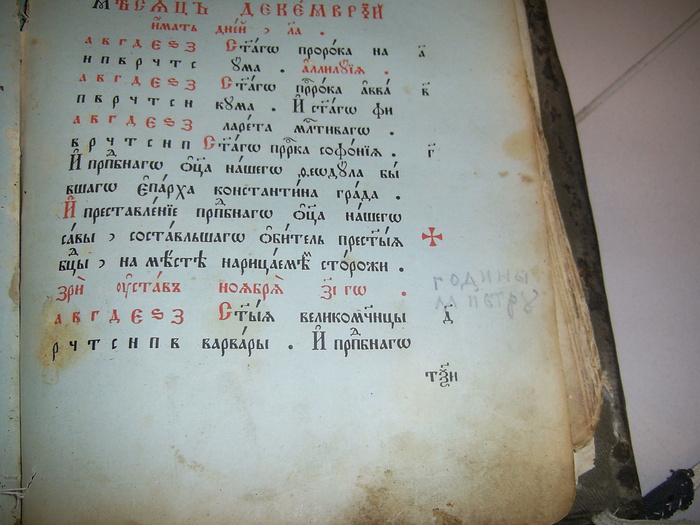 мѣсѧцъ деке́мврїй
и҆́мать дні́й , л҃а .
а в г д е ѕ з Ст҃а́гѡ проро́ка на а҃
н п в р ч т с ꙋма . а҆ллилꙋ́їа .
а в г д е ѕ з Ст҃а́гѡ прⷪ҇ро́ка а҆вва́ в҃
п в р ч т с н кꙋма . И҆ ст҃а́гѡ фи
а в г д е ѕ з ларе́та млⷭ҇тиваго .
в р ч т с н п Ст҃а́гѡ прⷪ҇ро́ка софо́нїа . г҃
И҆ прпⷣбнагѡ ѻ҆ц҃а̀ на́шегѡ ѳ.еодꙋла бы́
вшагѡ є҆па́рха константи́на гра́да .
И҆ преставле́нїе прпⷣбнагѡ ѻ҆ц҃а̀ на́шегѡ
са́вы , соста́вльшагѡ ѻ҆би́тель прест҃ы́ѧ
бⷣцы , на мѣ́стѣ нарица́емѣмъ сторо́жи .
зрѝ оу҆ста́въ ноѧбрѧ̀ з҃і гѡ .
а в г д е ѕ з Ст҃ы́ѧ великомч҃ницы д҃
р ч т с н п в варва́ры . И҆ прпⷣбнагѡ